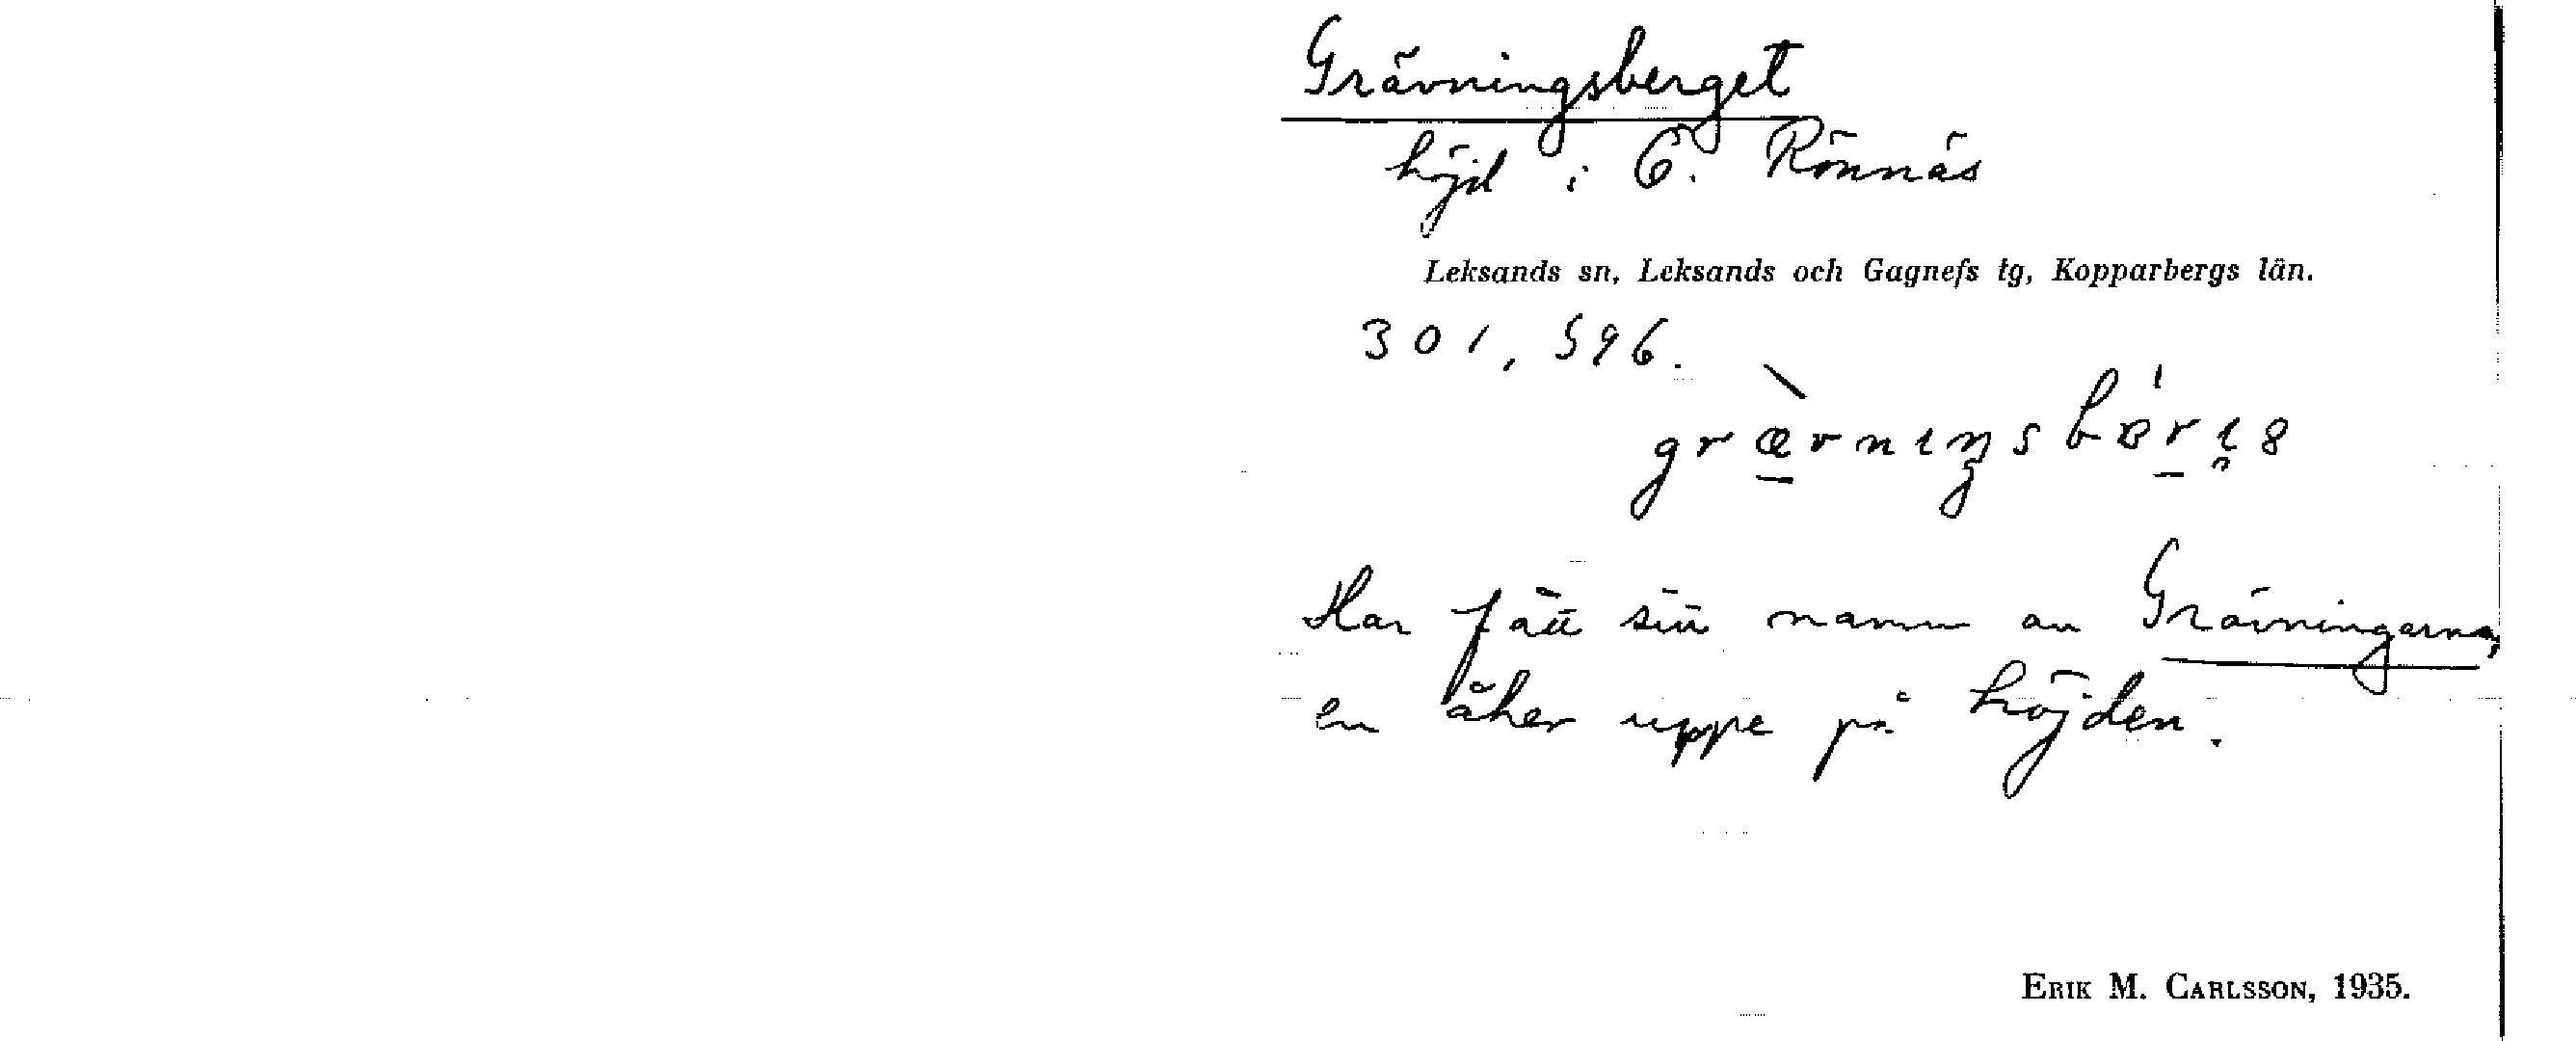 Grävningsberget
höjd i Ö. Rönnäs
Leksands sn, Leksands och Gagnefs tg, Kopparbergs län.
301, 596.
Har fått sitt namn av Grävningarna,
en åker uppe på höjden.
ERIK M. CARLSSON, 1935.